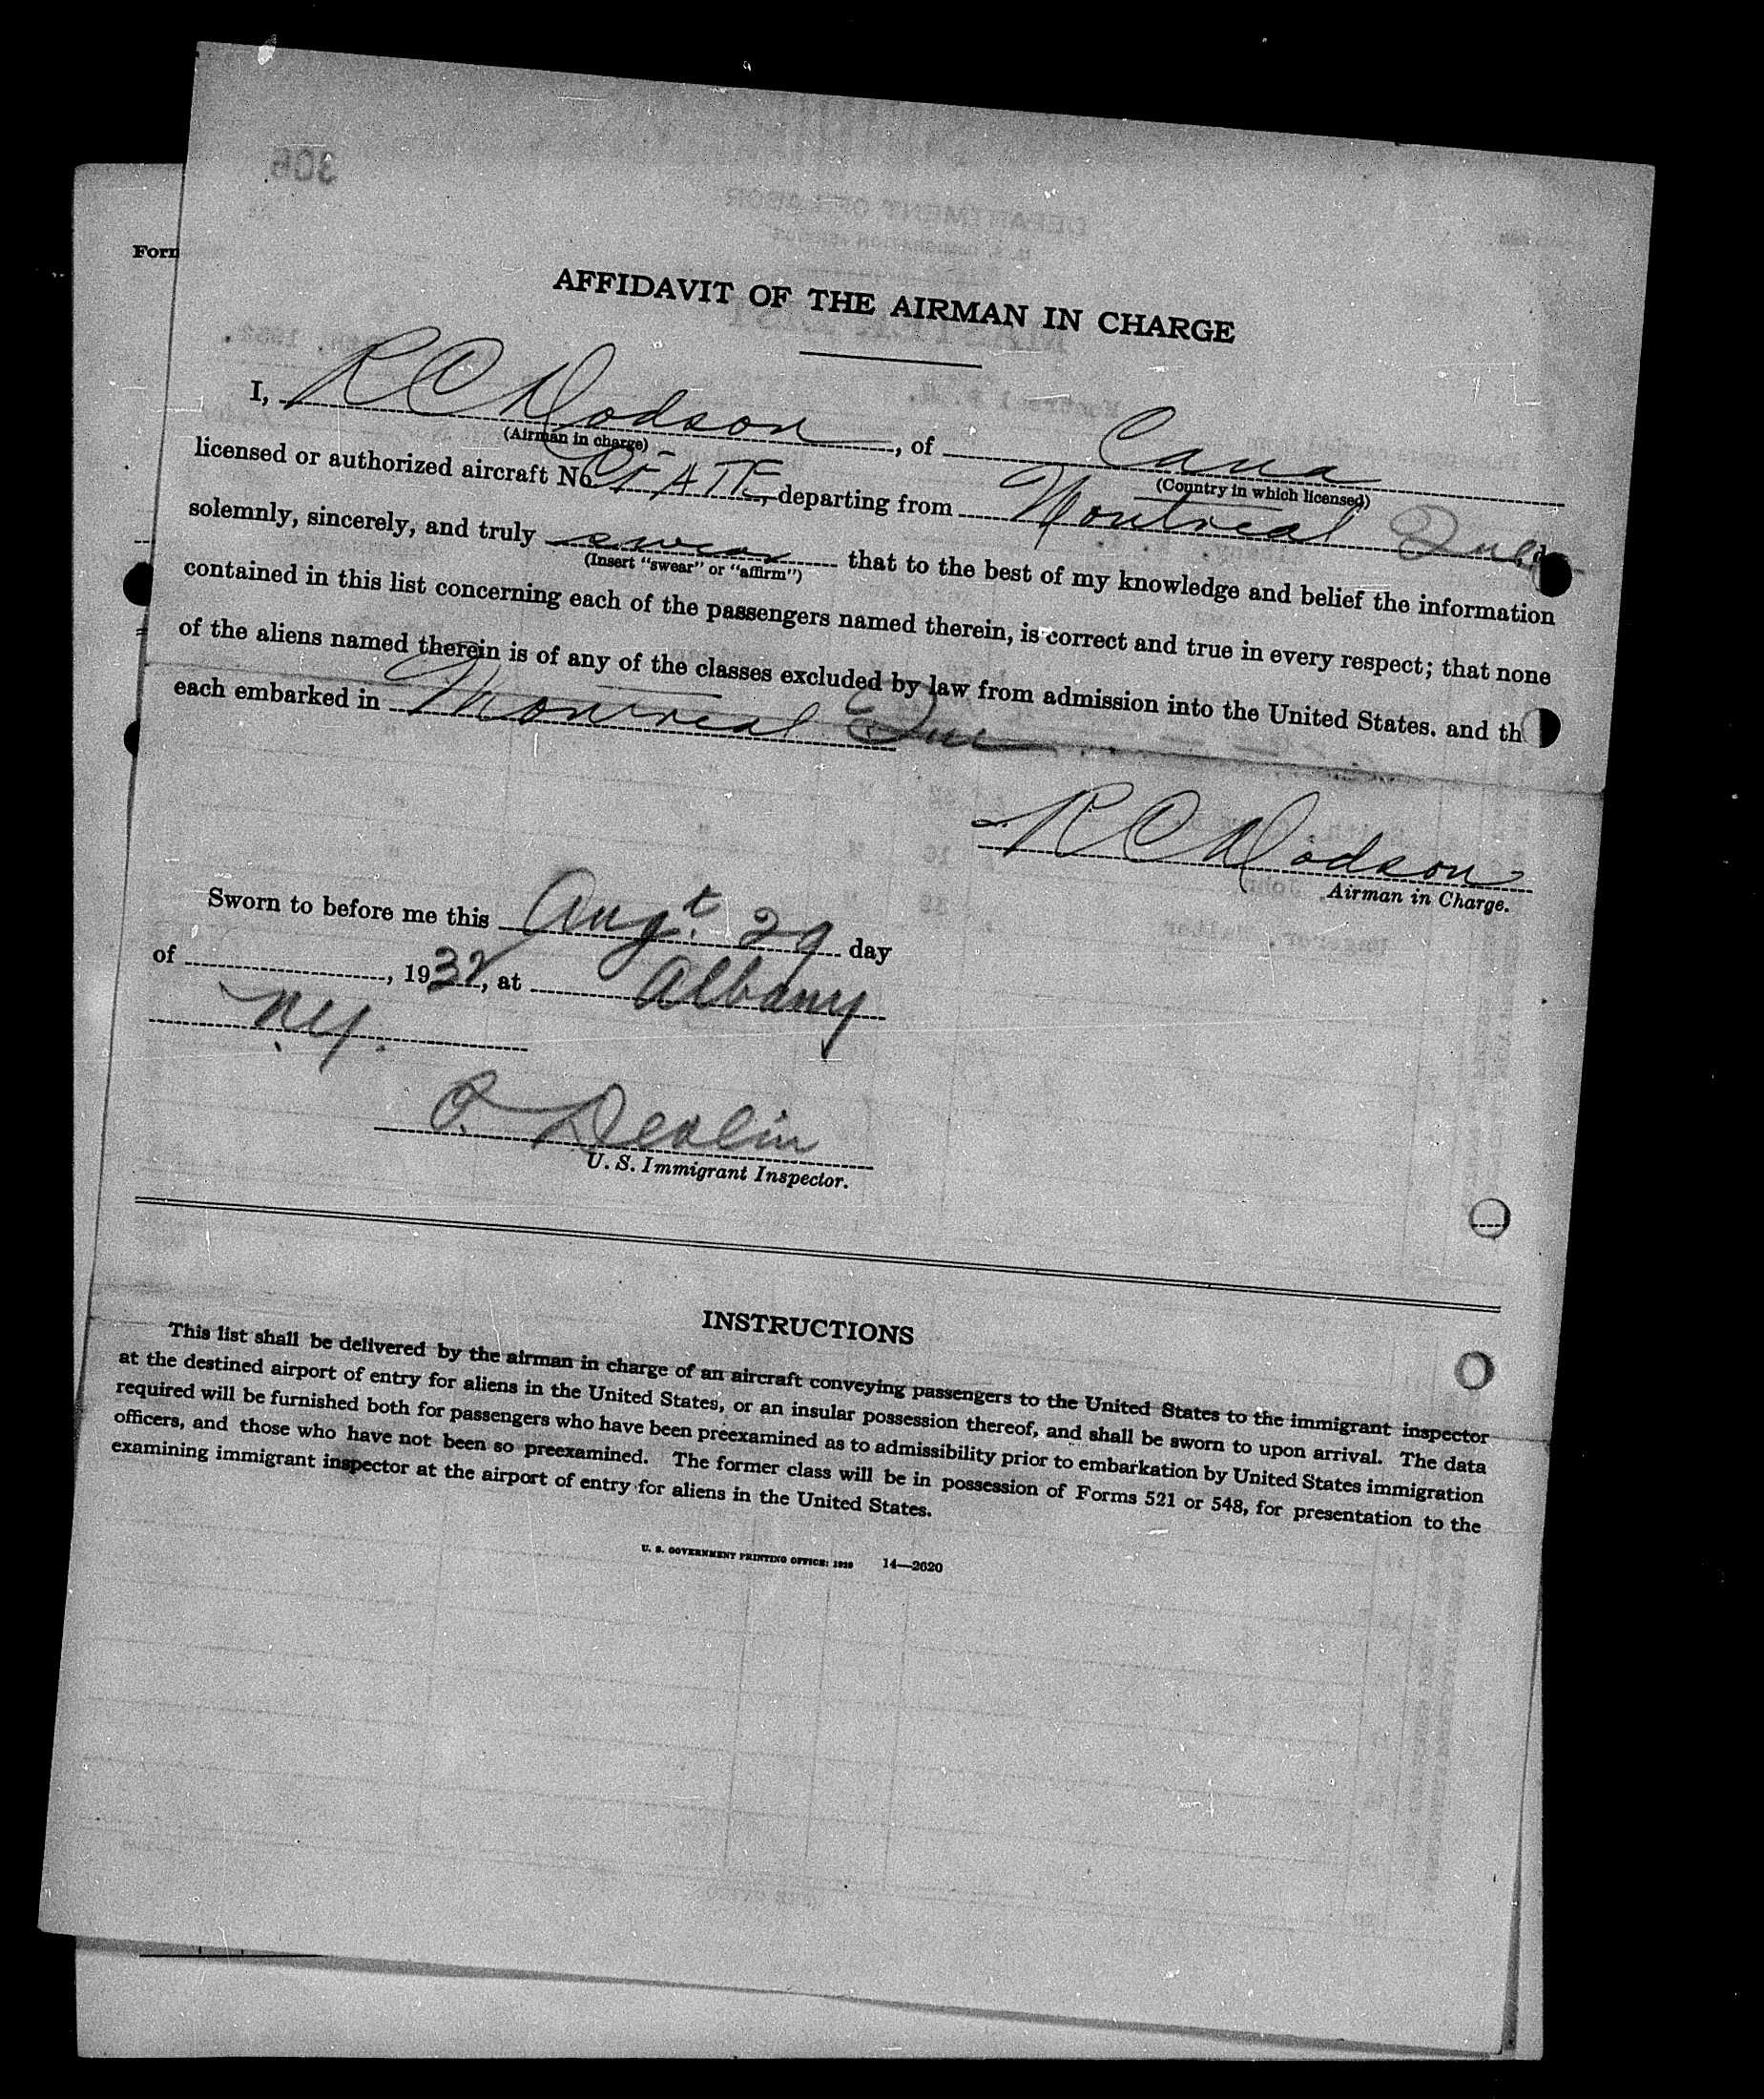 Form
AFFIDAVIT OF THE AIRMAN IN CHARGE
I, R C Dodson, of Cana
(Airman in charge) (Country in which licensed)
licensed or authorized aircraft No. CF ATF, departing from Montreal Que
solemnly, sincerely, and truly swear that to the best of my knowledge and belief the information
(Insert "swear" or "affirm")
contained in this list concerning each of the passengers named therein, is correct and true in every respect; that none
of the aliens named therein is of any of the classes excluded by law from admission into the United States. and th
each embarked in Montreal Que
R C Dodson
Airman in Charge.
Sworn to before me this Augt. 29 day
of , 1932, at Albany
N.Y.
Devlin
U. S. Immigrant Inspector.
INSTRUCTIONS
This list shall be delivered by the airman in charge of an aircraft conveying passengers to the United States to the immigrant inspector
at the destined airport of entry for aliens in the United States, or an insular possession thereof, and shall be sworn to upon arrival. The data
required will be furnished both for passengers who have been preexamined as to admissibility prior to embarkation by United States immigration
officers, and those who have not been so preexamined. The former class will be in possession of Forms 521 or 548, for presentation to the
examining immigrant inspector at the airport of entry for aliens in the United States.
U. S. GOVERNMENT PRINTING OFFICE: 1929 14—2620